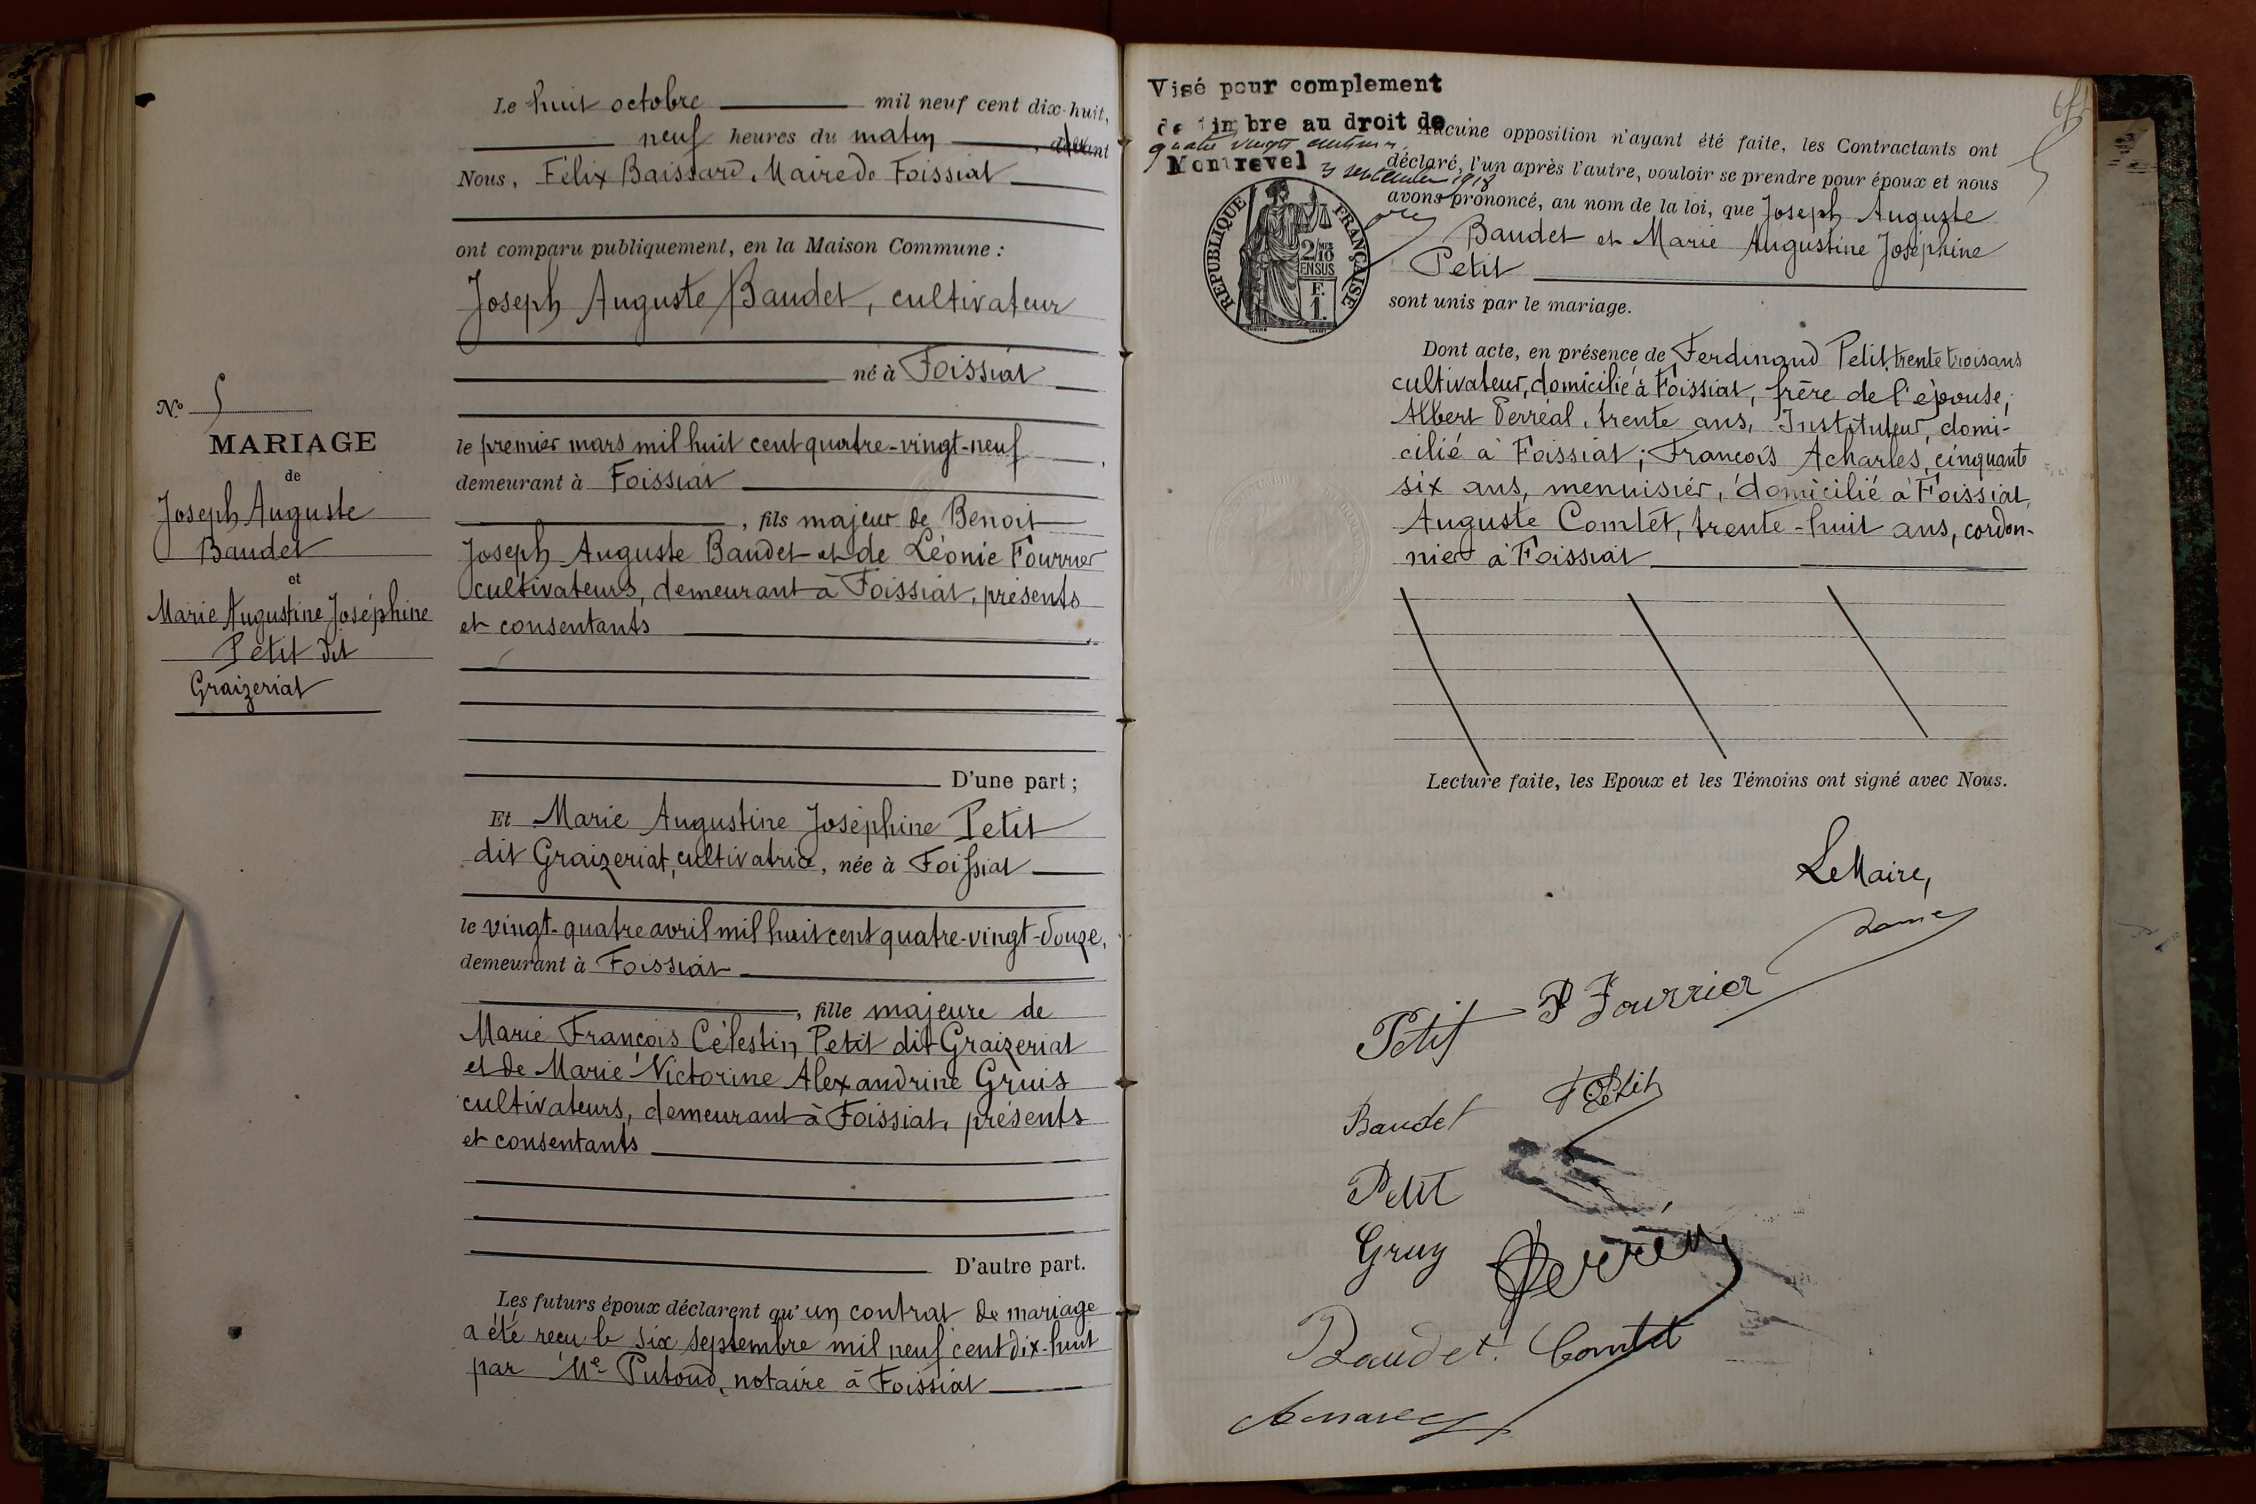 Le huit octobre mil neuf cent dix-huit,
neuf heures du matin, devant
Nous, Félix Baissard, Maire de Foissiat
ont comparu publiquement, en la Maison Commune :
Joseph Auguste Baudet, cultivateur
né à Foissiat
le premier mars mil huit cent quatre-vingt-neuf,
demeurant à Foissiat
, fils majeur de Benoit
Joseph Auguste Baudet et de Léonie Fourrier
cultivateurs, demeurant à Foissiat, présents
et consentants
D'une part ;
Et Marie Augustine Joséphine Petit
dit Graizeriat, cultivatrice, née à Foissiat
le vingt-quatre avril mil huit cent quatre-vingt-douze,
demeurant à Foissiat
, fille majeure de
Marie François Célestin Petit dit Graizeriat
et de Marie Victorine Alexandrine Gruis
cultivateurs, demeurant à Foissiat, présents
et consentants
D'autre part.
Les futurs époux déclarent qu'un contrat de mariage
a été reçu le six septembre mil neuf cent dix-huit
par Me Putoud, notaire à Foissiat
N° 5
MARIAGE
de
Joseph Auguste
Baudet
et
Marie Augustine Joséphine
Petit dit
Graizeriat
Visé pour complement
de timbre au droit de
quatre vingt centimes
Montrevel 3 septembre 1918
RÉPUBLIQUE FRANÇAISE
2/10
EN SUS
F.
1.
Aucune opposition n'ayant été faite, les Contractants ont
déclaré, l'un après l'autre, vouloir se prendre pour époux et nous
avons prononcé, au nom de la loi, que Joseph Auguste
Baudet et Marie Augustine Joséphine
Petit
sont unis par le mariage.
Dont acte, en présence de Ferdinand Petit, trente trois ans
cultivateur, domicilié à Foissiat, frère de l'épouse;
Albert Perréal, trente ans, Instituteur, domi-
cilié à Foissiat; François Acharles, cinquante
six ans, menuisier, domicilié à Foissiat,
Auguste Comtet, trente-huit ans, cordon-
nier à Foissiat
Lecture faite, les Epoux et les Témoins ont signé avec Nous.
Le Maire,
Petit
Fourrier
Baudet
F Petit
Petit
Gruy
Perréal
Baudet
Comtet